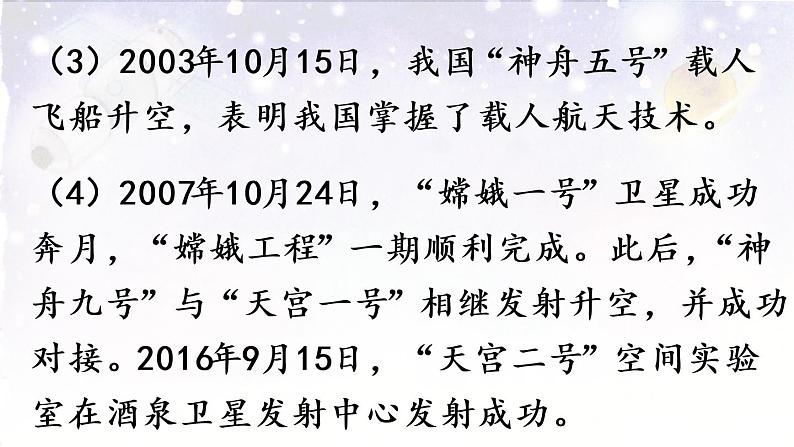 （3）2003年10月15日，我国“神舟五号”载人
飞船升空，表明我国掌握了载人航天技术。
（4）2007年10月24日，“嫦娥一号”卫星成功
奔月，“嫦娥工程”一期顺利完成。此后，“神
舟九号”与“天宫一号”相继发射升空，并成功
对接。2016年9月15日，“天宫二号”空间实验
室在酒泉卫星发射中心发射成功。